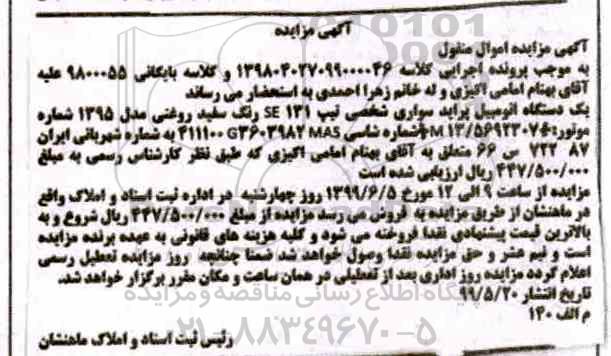 آگهی مزایده
آگهی مزایده اموال منقول
به موجب پرونده اجرایی کلاسه ۱۳۹۸۰۴۰۲۷۰۹۹۰۰۰۰۴۶ و کلاسه بایگانی ۹۸۰۰۰۵۵ علیه
آقای بهنام امامی اکیزی و له خانم زهرا احمدی به استحضار می رساند
یک دستگاه اتومبیل پراید سواری شخصی تیپ SE ۱۳۱ رنگ سفید روغنی مدل ۱۳۹۵ شماره
موتور: M۱۳/۵۶۹۲۳۰۷ شماره شاسی ۴۱۱۱۰۰ G۳۶۰۳۹۸۲ MAS به شماره شهربانی ایران
۸۷ ۷۲۲ س ۶۶ متعلق به آقای بهنام امامی اکیزی که طبق نظر کارشناس رسمی به مبلغ
۴۴۷/۵۰۰/۰۰۰ ریال ارزیابی شده است
مزایده از ساعت ۹ الی ۱۲ مورخ ۱۳۹۹/۶/۵ روز چهارشنبه در اداره ثبت اسناد و املاک واقع
در ماهنشان از طریق مزایده به فروش می رسد مزایده از مبلغ ۴۴۷/۵۰۰/۰۰۰ ریال شروع و به
بالاترین قیمت پیشنهادی نقدا فروخته می شود و کلیه هزینه های قانونی به عهده برنده مزایده
است و نیم عشر و حق مزایده نقدا وصول خواهد شد ضمنا چنانچه روز مزایده تعطیل رسمی
اعلام گردد مزایده روز اداری بعد از تعطیلی در همان ساعت و مکان مقرر برگزار خواهد شد.
تاریخ انتشار ۹۹/۵/۲۰
م الف ۱۴۰
پایگاه اطلاع رسانی مناقصه و مزایده
۰۲۱-۸۸۳۴۹۶۷۰-۵
رئیس ثبت اسناد و املاک ماهنشان